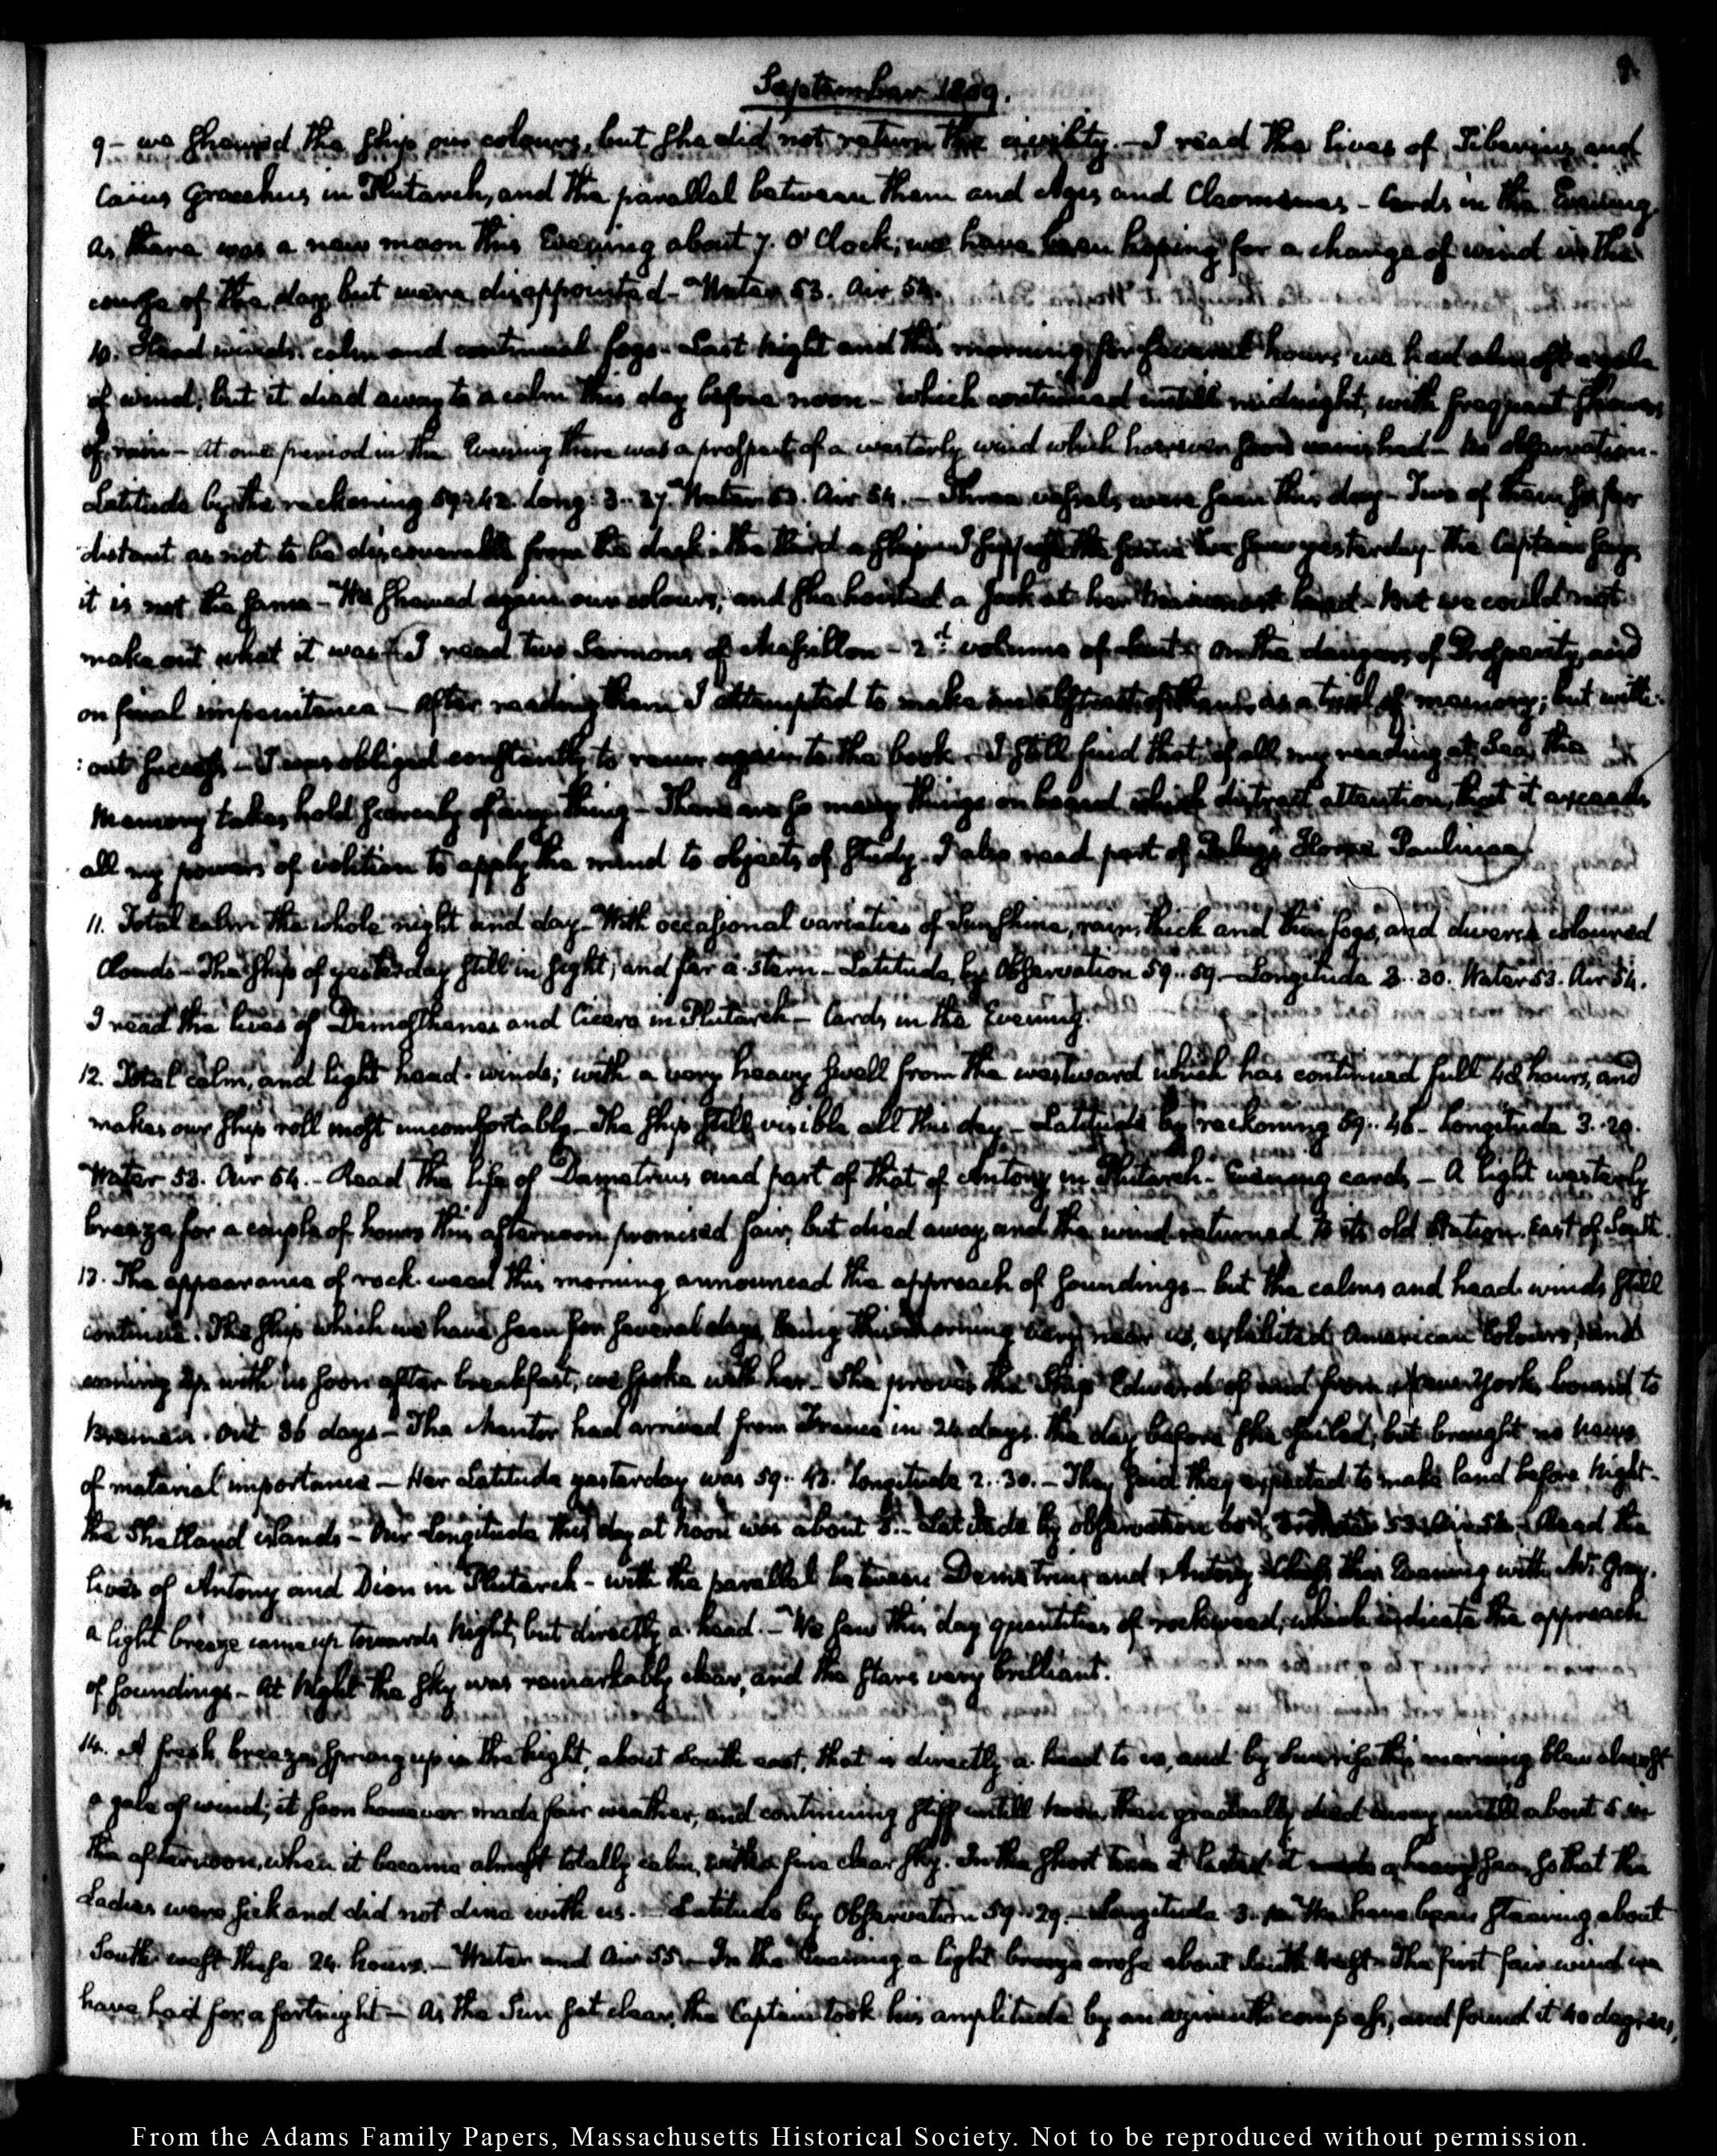 September 1809.
9 - we shewed the ship our colours, but she did not return the civility. - I read the lives of Tiberius and
Caius Gracchus in Plutarch, and the parallel between them and Agis and Cleomenes - Cards in the Evening.
As there was a new moon this Evening about 7. O'Clock, we have been hoping for a change of wind in the
course of the day, but were disappointed - Water 53. Air 54.
10. Head winds, calm and continual fogs - Last night and this morning for several hours we had almost a gale
of wind; but it died away to a calm this day before noon - which continued untill midnight, with frequent showers
of rain - At one period in the Evening there was a prospect of a westerly wind which however soon vanished - No observation -
Latitude by the reckoning 59..42. Long: 3..27. Water 53. Air 54. - Three vessels were seen this day - Two of them so far
distant as not to be discoverable from the deck - the third a ship I suppose the same we saw yesterday - The Captain says
it is not the same - We shewed again our colours, and she hoisted a Jack at her Mainmast head - But we could not
make out what it was - I read two Sermons of Massillon - 2d. volume of Lent - On the dangers of Prosperity, and
on final impenitence - After reading them I attempted to make an abstract of them, as a trial of memory; but with-
:out success - I was obliged constantly to recur again to the book - I still find that of all my reading at Sea, the
Memory takes hold scarcely of any thing - There are so many things on board which distract attention, that it exceeds
all my powers of volition to apply the mind to objects of study - I also read part of Paley's Horae Paulinae.
11. Total calm the whole night and day - With occasional varieties of Sunshine, rain, thick and thin fogs, and diverse coloured
Clouds - The ship of yesterday still in sight, and far a-stern - Latitude, by Observation 59..59 - Longitude 3..30. Water 53. Air 54.
I read the lives of Demosthenes and Cicero in Plutarch - Cards in the Evening.
12. Total calm, and light head-winds; with a very heavy swell from the westward which has continued full 48 hours, and
makes our ship roll most uncomfortably - The ship still visible all this day - Latitude by reckoning 59..46 - Longitude 3..29.
Water 53. Air 54. - Read the life of Demetrius and part of that of Antony in Plutarch - Evening cards - A light westerly
breeze for a couple of hours this afternoon promised fair, but died away, and the wind returned to its old station East of South.
13. The appearance of rock-weed this morning announced the approach of soundings - but the calms and head-winds still
continue. The ship which we have seen for several days, being this morning very near us, exhibited American Colours, and
coming up with us soon after breakfast, we spoke with her - She proves the Ship Edward of and from New-York, bound to
Bremen. Out 36 days - The Mentor had arrived from France in 24 days the day before she sailed; but brought no news
of material importance - Her Latitude yesterday was 59..43. Longitude 2..30. - They said they expected to make land before Night -
The Shetland islands - Our Longitude this day at Noon was about 3 - Latitude by observation Water 53. Air 54. Read the
lives of Antony and Dion in Plutarch - with the parallel between Demetrius and Antony. Chess this Evening with Mr. Gray.
A light breeze came up towards Night, but directly a-head. - We saw this day quantities of rockweed, which indicate the approach
of soundings - At Night the sky was remarkably clear, and the stars very brilliant.
14. A fresh breeze sprung up in the Night, about South east, that is directly a-head to us, and by Sunrise this morning blew almost
a gale of wind; it soon however made fair weather, and continuing stiff untill Noon, then gradually died away untill about 5 in
the afternoon, when it became almost totally calm, with a fine clear sky. In the short time it lasted it made a heavy sea, so that the
Ladies were sick and did not dine with us. - Latitude by Observation 59..29. - Longitude 3. We have been steering about
South-west these 24 hours. - Water and Air 55. - In the Evening a light breeze arose about South West - The first fair wind we
have had for a fortnight - As the Sun set clear, the Captain took his amplitude by an azimuth compass, and found it 40 degrees,
8
From the Adams Family Papers, Massachusetts Historical Society. Not to be reproduced without permission.